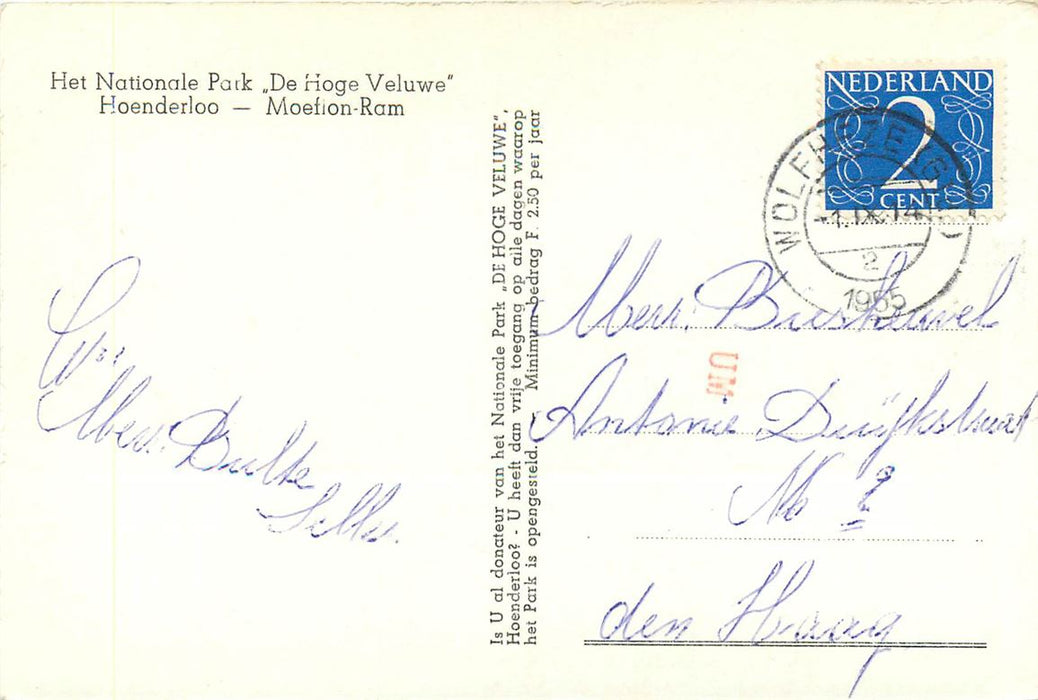 Het Nationale Park „De Hoge Veluwe"
Hoenderloo — Moeflon-Ram
Is U al donateur van het Nationale Park „DE HOGE VELUWE",
Hoenderloo? - U heeft dan vrije toegang op alle dagen waarop
het Park is opengesteld. Minimum bedrag F. 2.50 per jaar
NEDERLAND
2
CENT
WOLFHEZE (GLD)
1.IX.14
2
1955
Mevr.
Antonie Duijkstraat
No 2
den Haag
Mevr. Bulte